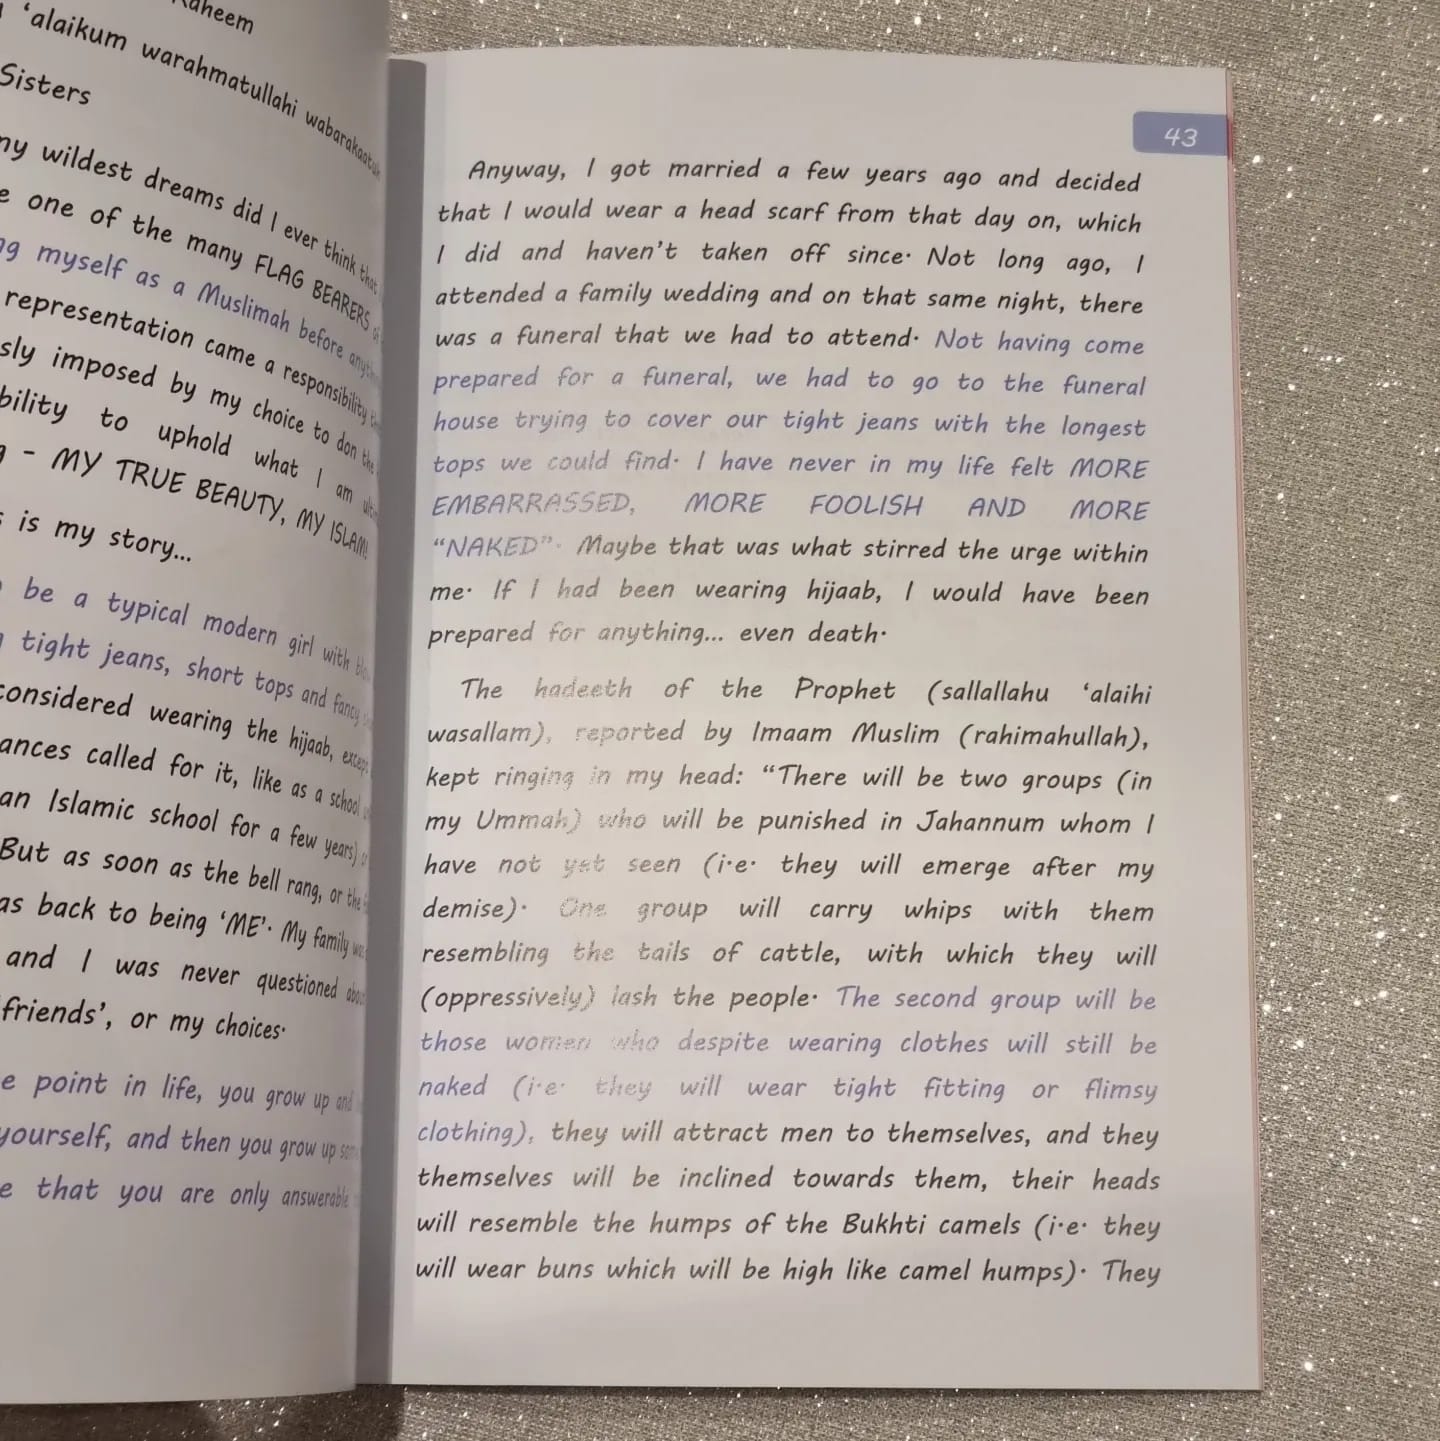 Raheem
'alaikum warahmatullahi wabarakaatuh
Sisters
my wildest dreams did I ever think that
one of the many FLAG BEARERS of
myself as a Muslimah before
representation came a responsibility
imposed by my choice to don the
to uphold what I am
- MY TRUE BEAUTY, MY ISLAM!
is my story...
be a typical modern girl with
tight jeans, short tops and fancy
considered wearing the hijaab, except
called for it, like as a school
an Islamic school for a few years)
But as soon as the bell rang, or the
back to being 'ME'. My family was
and I was never questioned about
friends', or my choices.
point in life, you grow up and
yourself, and then you grow up
that you are only answerable
43
Anyway, I got married a few years ago and decided
that I would wear a head scarf from that day on, which
I did and haven't taken off since. Not long ago, I
attended a family wedding and on that same night, there
was a funeral that we had to attend. Not having come
prepared for a funeral, we had to go to the funeral
house trying to cover our tight jeans with the longest
tops we could find. I have never in my life felt MORE
EMBARRASSED, MORE FOOLISH AND MORE
"NAKED". Maybe that was what stirred the urge within
me. If I had been wearing hijaab, I would have been
prepared for anything... even death.
The hadeeth of the Prophet (sallallahu 'alaihi
wasallam), reported by Imaam Muslim (rahimahullah),
kept ringing in my head: "There will be two groups (in
my Ummah) who will be punished in Jahannum whom I
have not yet seen (i.e. they will emerge after my
demise). One group will carry whips with them
resembling the tails of cattle, with which they will
(oppressively) lash the people. The second group will be
those women who despite wearing clothes will still be
naked (i.e. they will wear tight fitting or flimsy
clothing), they will attract men to themselves, and they
themselves will be inclined towards them, their heads
will resemble the humps of the Bukhti camels (i.e. they
will wear buns which will be high like camel humps). They